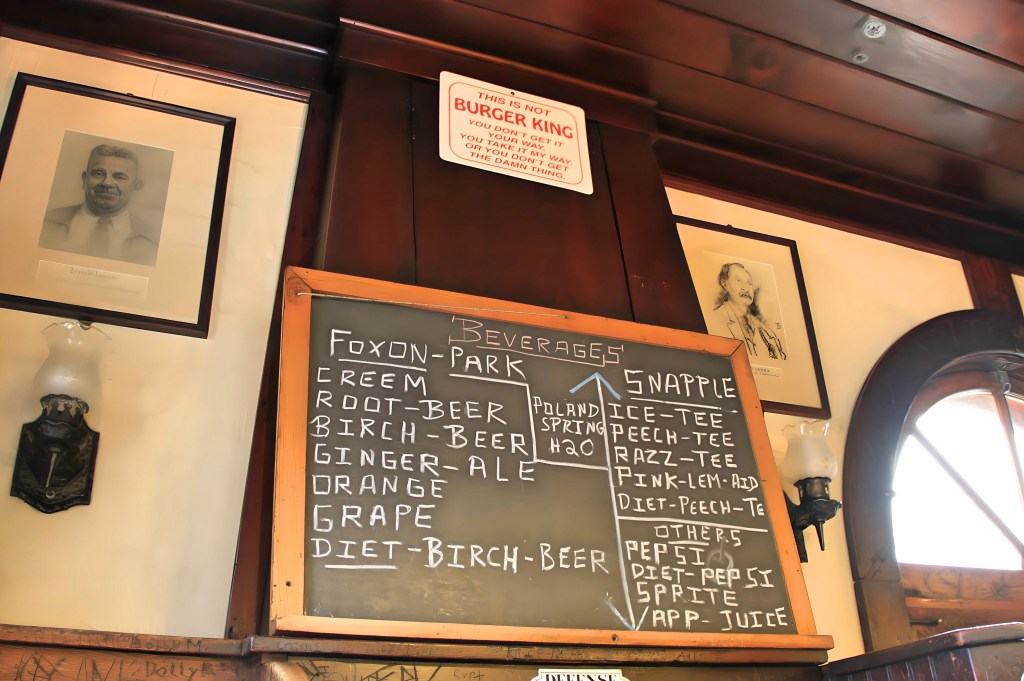 THIS IS NOT
BURGER KING
YOU DON'T GET IT
YOUR WAY.
YOU TAKE IT MY WAY,
OR YOU DON'T GET
THE DAMN THING.
BEVERAGES
FOXON-PARK
CREEM
ROOT-BEER
BIRCH-BEER
GINGER-ALE
ORANGE
GRAPE
DIET-BIRCH-BEER
POLAND
SPRING
H2O
SNAPPLE
ICE-TEE
PEECH-TEE
RAZZ-TEE
PINK-LEM-AID
DIET-PEECH-TE
OTHERS
PEPSI
DIET-PEPSI
SPRITE
APP-JUICE
DOLLY
DEFENSE